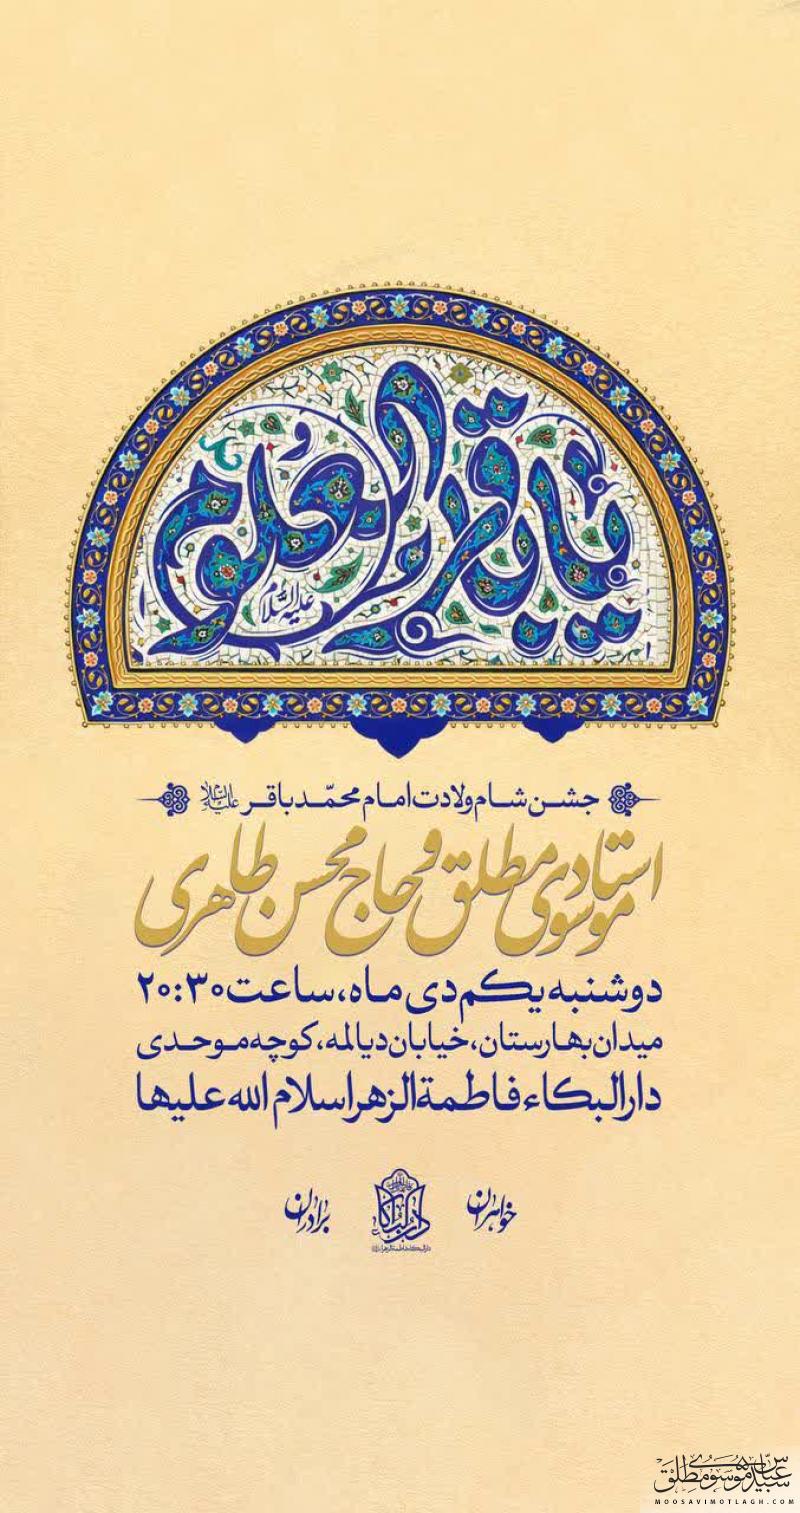 یا باقر العلوم
علیه السلام
جشن شام ولادت امام محمّد باقر علیه السلام
استاد موسوی مطلق و حاج محسن طاهری
دوشنبه یکم دی ماه، ساعت ۲۰:۳۰
میدان بهارستان، خیابان دیالمه، کوچه موحدی
دارالبکاء فاطمة الزهرا سلام الله علیها
خواهران
دارالبکاء
برادران
دارالبکاء فاطمة الزهرا
سید عباس موسوی مطلق
MOOSAVIMOTLAGH.COM